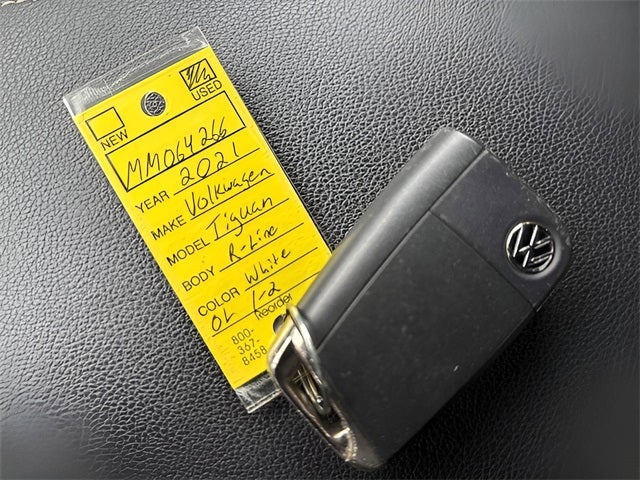 NEW
USED
MM064266
YEAR 2021
MAKE Volkwagen
MODEL Tiguan
BODY R-Line
COLOR White
OL 1-2
Reorder
800-
367-
8458